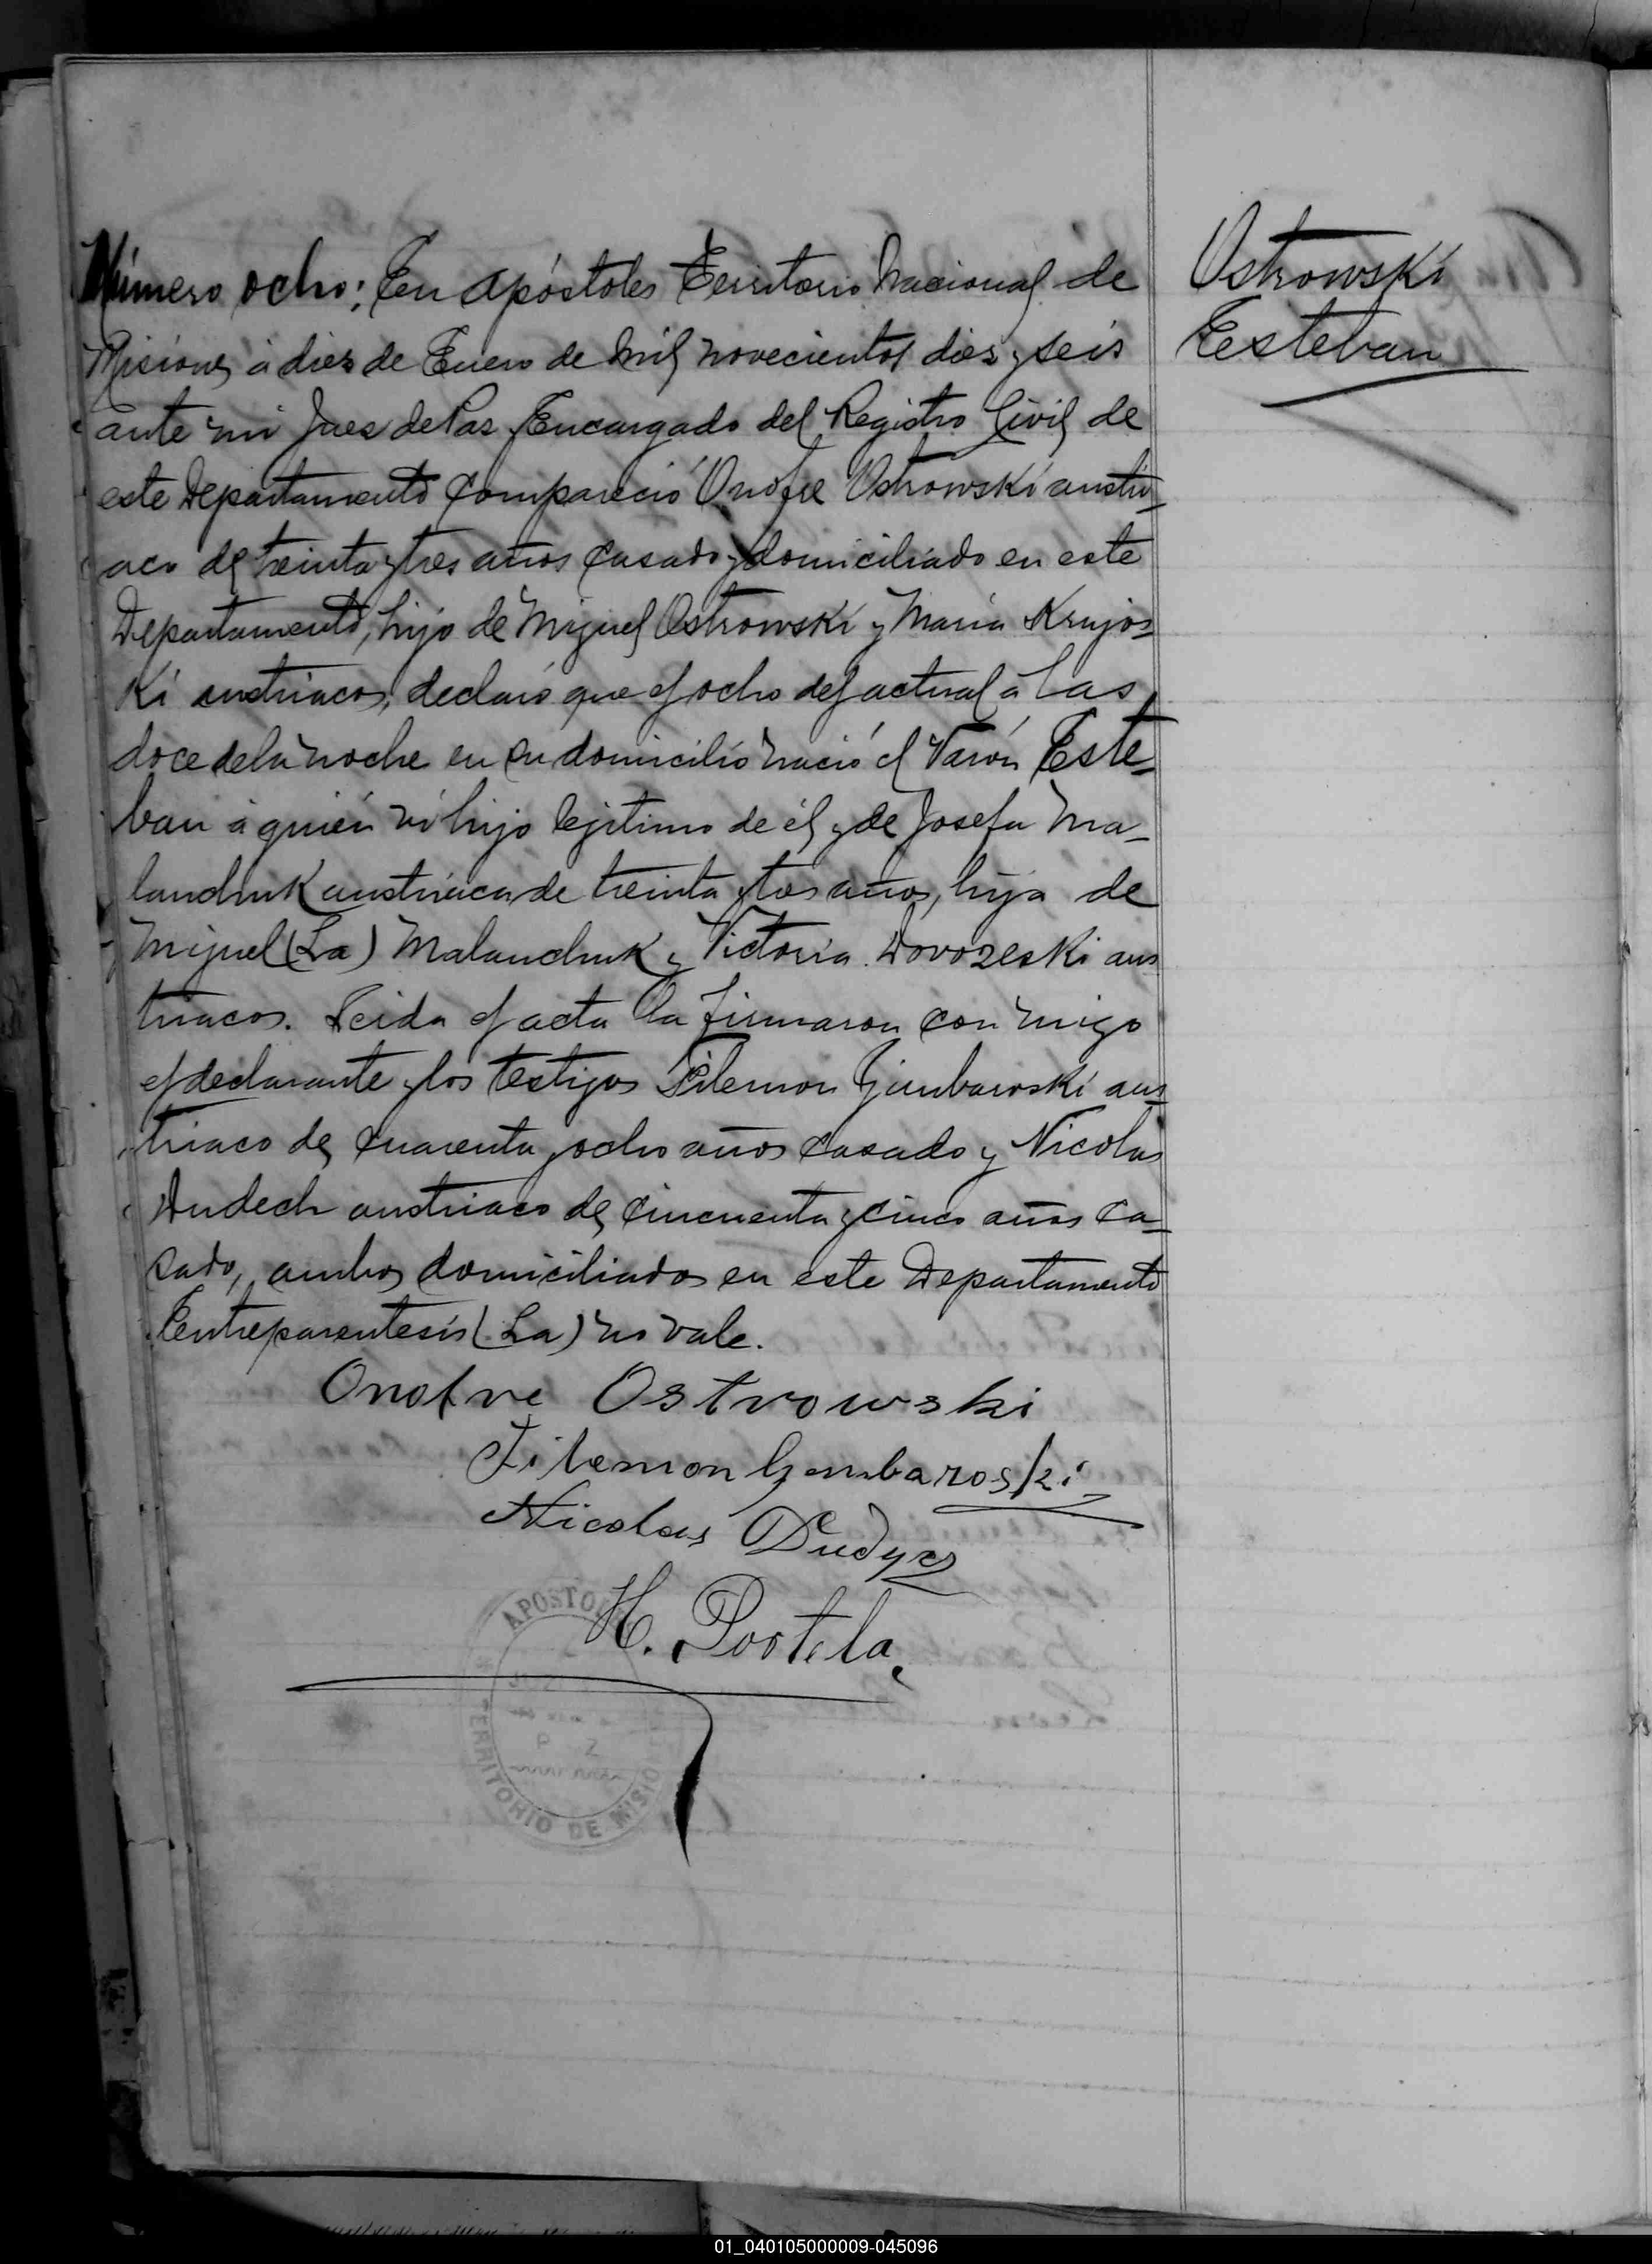 Número ocho: En Apóstoles Territorio Nacional de
Misiones á diez de Enero de mil novecientos diez y seis
ante mi Juez de Paz Encargado del Registro Civil de
este Departamento Compareció Onofre Ostrowski austri-
aco de treinta y tres años casado y domiciliado en este
Departamento, hijo de Miguel Ostrowski y María Krujos-
ki austriacos, declaró que el ocho del actual á las
doce de la noche en su domicilio nació el Varón Este-
ban á quién ví hijo lejitimo de él y de Josefa Ma-
landruk austriaca de treinta y tres años, hija de
Miguel (La) Malanchuk y Victoria Dovozeski aus
triacos. Leida el acta la firmaron con migo
el declarante y los testigos Filemon Gimbaroski aus-
triaco de cuarenta y ocho años casado y Nicolas
Dudech austriaco de cincuenta y cinco años ca-
sado, ambos domiciliados en este Departamento
Entreparentesis (La) no vale.
Onofre Ostrowski
Filemon Gembaroski
Nicolas Dudycz
H. Portela
APOSTOL
TERRITORIO DE MISIO
Ostrowski
Esteban
01_040105000009-045096